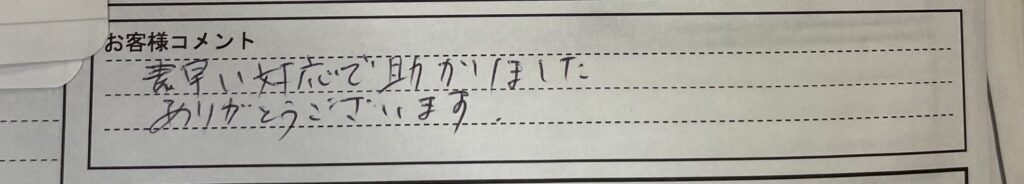 お客様コメント
素早い対応で助かりました
ありがとうございます.